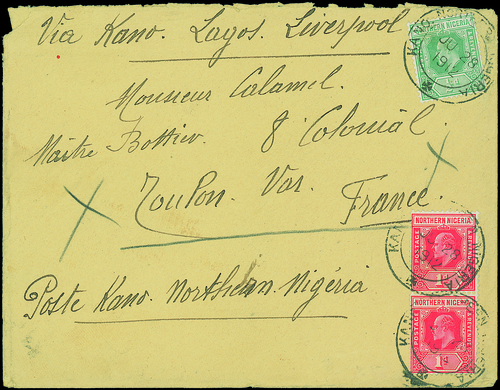 Via Kano. Lagos. Liverpool
KANO NORTHERN NIGERIA
NORTHERN NIGERIA
Monsieur Calamel.
Maître Bottier. 8 Colonial.
Toulon. Var.
France.
NORTHERN NIGERIA
POSTAGE & REVENUE
1d
Poste Kano. Northern. Nigéria
POSTAGE & REVENUE
1d